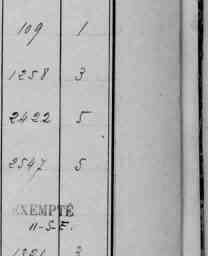 109 1
1258 3
2422 5
2547 5
EXEMPTÉ
11-S-E.
3